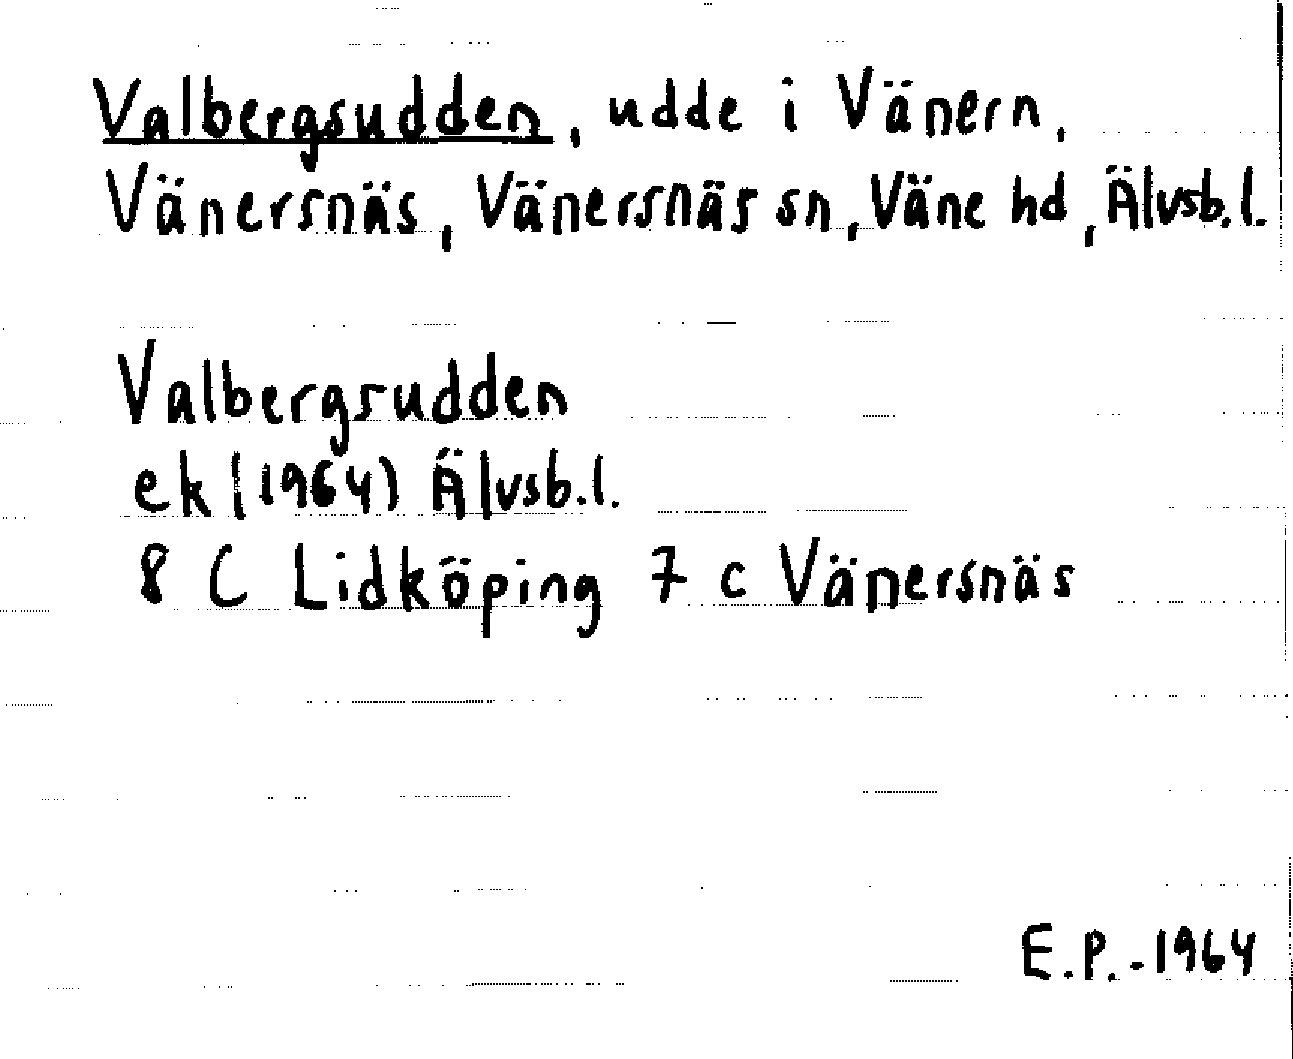 Valbergsudden, udde i Vänern,
Vänersnäs, Vänersnäs sn, Väne hd, Älvsb.l.
Valbergsudden
ek (1964) Älvsb.l.
8 C Lidköping 7 c Vänersnäs
E.P.-1964